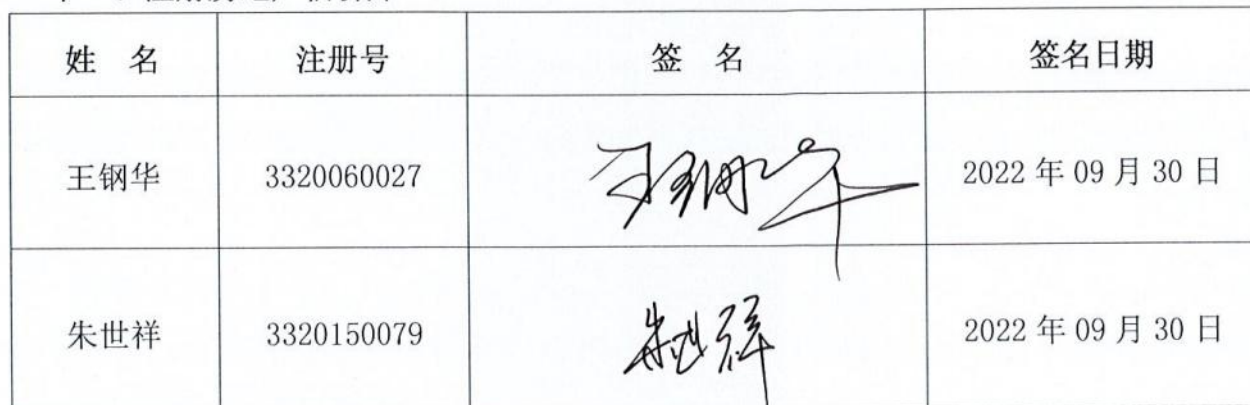 姓 名 注册号 签 名 签名日期
王钢华 3320060027 王钢华 2022 年 09 月 30 日
朱世祥 3320150079 朱世祥 2022 年 09 月 30 日